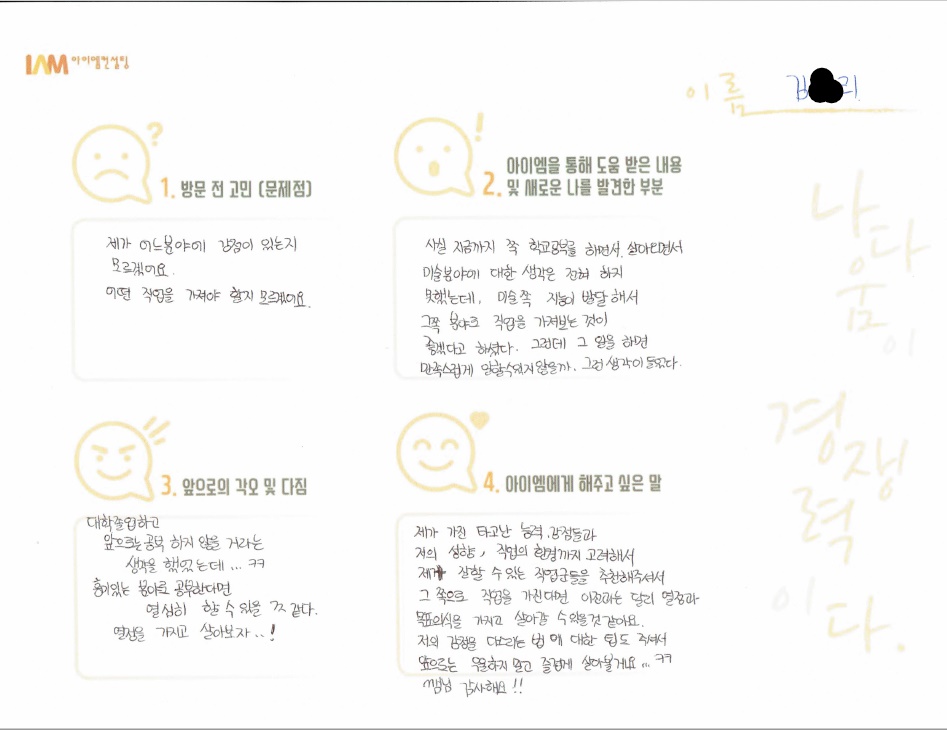 IAM 아이엠컨설팅
이름
1. 방문 전 고민 (문제점)
제가 어느분야에 강점이 있는지
모르겠어요.
어떤 직업을 가져야 할지 모르겠어요.
아이엠을 통해 도움 받은 내용
2. 및 새로운 나를 발견한 부분
사실 지금까지 쭉 학교공부를 하면서 살아오면서
미술분야에 대한 생각은 전혀 하지
못했는데, 미술쪽 지능이 발달해서
그쪽 분야로 직업을 가져보는 것이
좋겠다고 하셨다. 그런데 그 일을 하면
만족스럽게 일할수있지않을까. 그런 생각이 들었다.
3. 앞으로의 각오 및 다짐
대학졸업하고
앞으로는 공부 하지 않을 거라는
생각을 했었는데... ㅋㅋ
흥미있는 분야로 공부한다면
열심히 할 수 있을 것 같다.
열정을 가지고 살아보자..!
4. 아이엠에게 해주고 싶은 말
제가 가진 타고난 능력, 강점들과
저의 성향, 직업의 환경까지 고려해서
제가 잘할 수 있는 직업군들을 추천해주셔서
그 쪽으로 직업을 가진다면 이전과는 달리 열정과
목표의식을 가지고 살아갈 수있을것 같아요.
저의 감정을 다스리는 법에 대한 팁도 주셔서
앞으로는 우울하지 말고 즐겁게 살아볼게요... ㅋㅋ
쌤님 감사해요!!
나다움이
경쟁력이다.